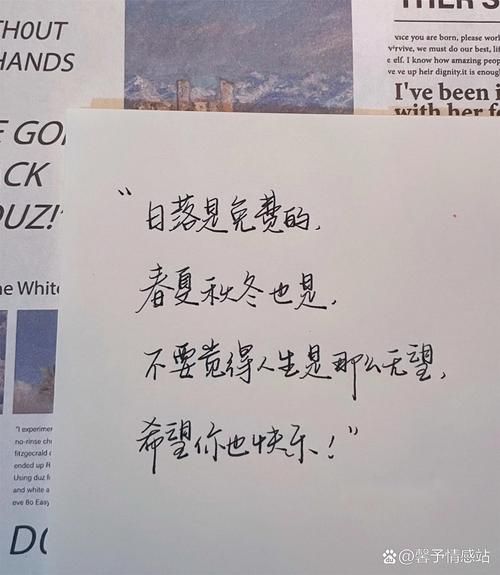 THOUT
HANDS
E GO
ACK
DUZ!"
he White
"I experimen
no-rinse ch
fitzgecrald c
ended up R
Using duz f
and white a
eve 8o Easy
DO
THER S
vice you are born, please work
rvive, we must do our best, li
e elf. I know how amazing peop
ve ve up heir dignity.it is enoug
I've been i
with her f
“日落是免费的,
春夏秋冬也是,
不要觉得人生是那么无望,
希望你也快乐!”
Bai
@馨予情感站